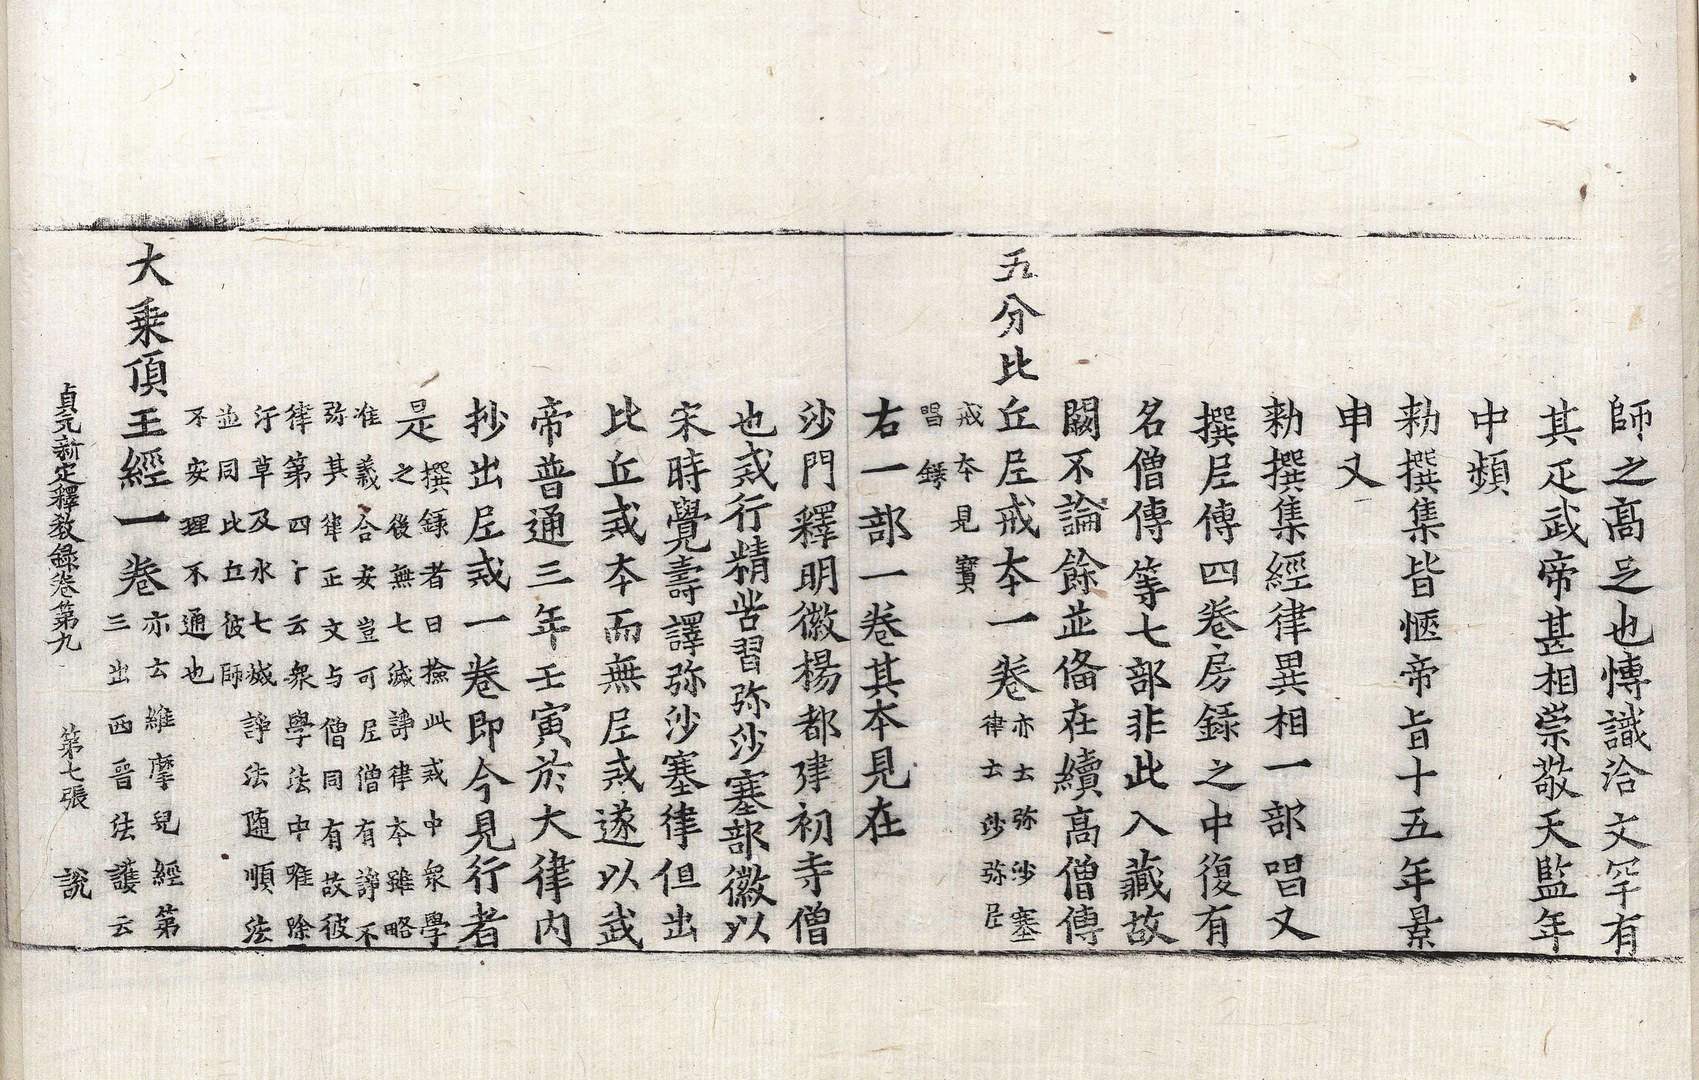 師之髙足也愽識洽文罕有
其疋武帝甚相崇敬天監年
中頻
勑撰集皆愜帝旨十五年景
申又
勑撰集經律異相一部唱又
撰尼傳四卷房録之中復有
名僧傳等七部非此入藏故
闕不論餘並俻在續髙僧傳
五分比丘尼戒本一卷亦云弥沙塞
律云沙弥尼
戒本見寶
唱録
右一部一卷其本見在
沙門釋明徽楊都建初寺僧
也戒行精苦習弥沙塞部徽以
宋時覺壽譯弥沙塞律但出
比丘戒本而無尼戒遂以武
帝普通三年壬寅於大律内
抄出尼戒一卷即今見行者
是撰録者曰撿此戒中衆學
之後無七滅諍律本雖略
准義合安豈可尼僧有諍不
弥其律正文与僧同有故彼
律第四十云衆學法中唯除
汙草及水七滅諍法随順法
並同比丘彼師
不安理不通也
大乗頂王經一卷亦云維摩兒經第
三出西晉法護云
貞元新定釋教錄卷第九 第七張 說